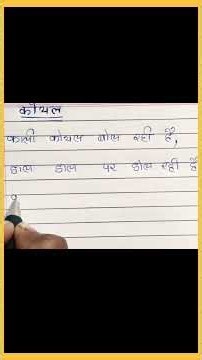 कोयल
काली कोयल बोल रही है,
डाल डाल पर डोल रही है